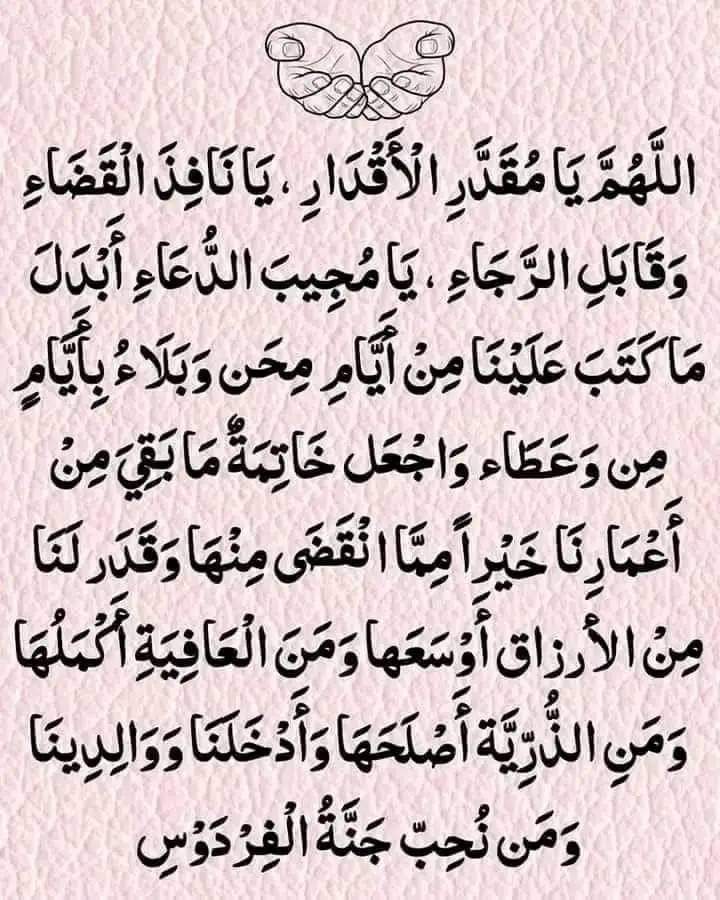 اللَّهُمَّ يَا مُقَدَّرِ الْأَقْدَارِ ، يَا نَافِذَ الْقَضَاءِ
وَقَابَلِ الرَّجَاءِ ، يَا مُجِيبَ الدُّعَاءِ أَبْدَلَ
مَا كَتَبَ عَلَيْنَا مِنْ أَيَّامِ مِحَن وَبَلَاءُ بِأَيَّامٍ
مِن وَعَطَاء وَاجْعَل خَاتِمَةٌ مَا بَقِيَ مِنْ
أَعْمَارِنَا خَيْراً مِمَّا انْقَضَى مِنْهَا وَقَدَر لَنَا
مِنْ الأرزاق أَوْسَعَها وَمَنَ الْعَافِيَةِ أَكْمَلُهَا
وَمَنِ الذُّرِّيَّة أَصْلَحَهَا وَأَدْخَلَنَا وَوَالِدِينَا
وَمَن نُحِبّ جَنَّةُ الْفِرْدَوْسِ